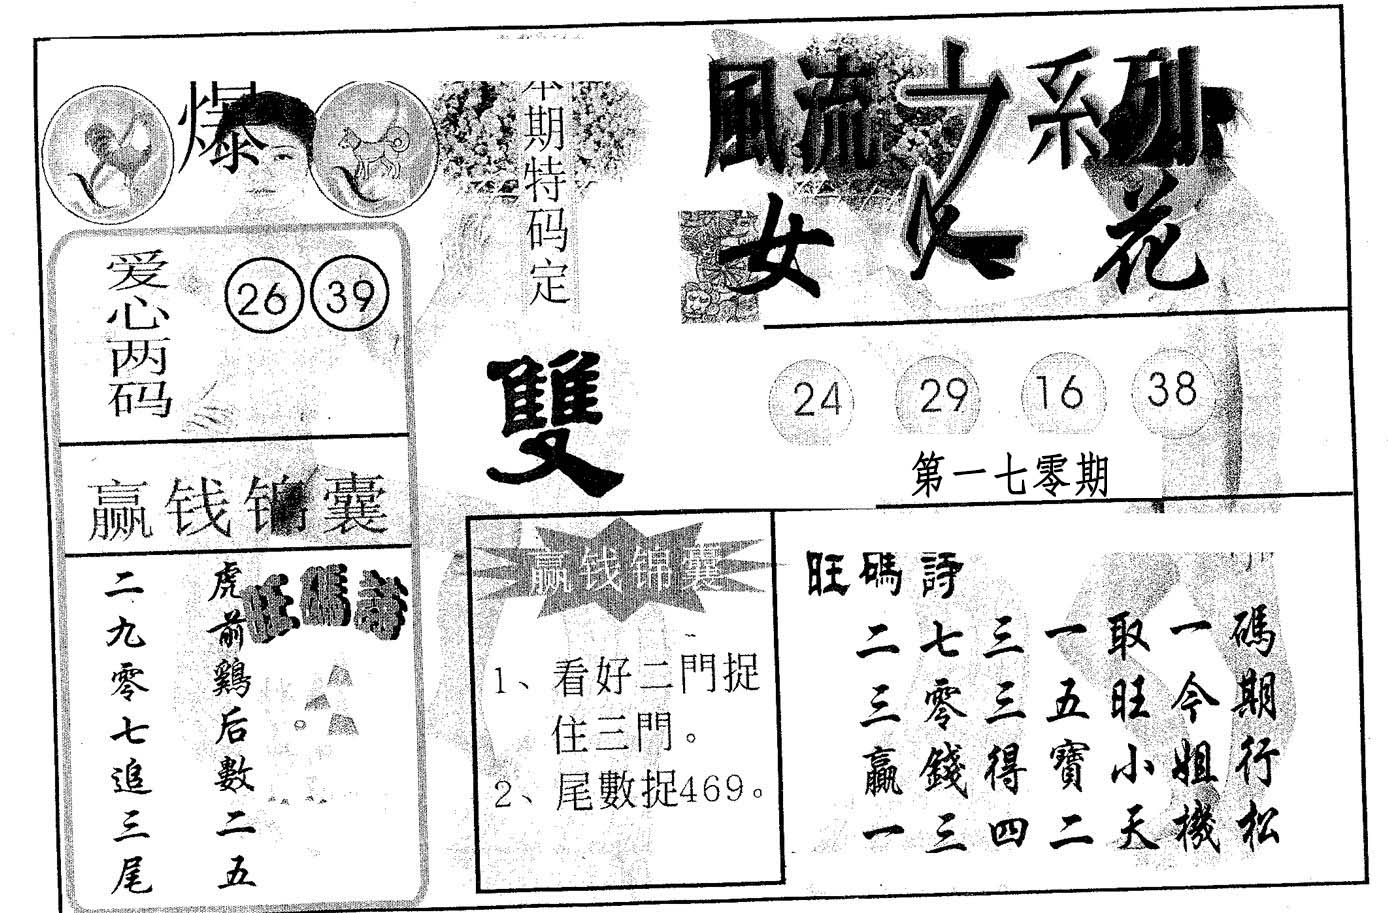 爆
本期特码定
雙
風流女系列
女人花
爱心两码
26 39
24 29 16 38
第一七零期
赢钱锦囊
旺碼詩
虎前鷄后數二五
二九零七追三尾
赢钱锦囊
1、看好二門捉
住三門。
2、尾數捉469。
旺碼詩
碼期行松
一今姐機
取旺小天
一五寶二
三三得四
七零錢三
二三贏一